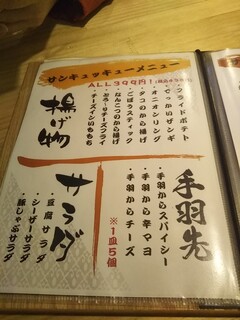 サンキュッキューメニュー
ALL399円!
揚げ物
・フライドポテト
・でっかいザンギ
・オニオンリング
・タコのから揚げ
・ごぼうスティック
・なんこつのから揚げ
・チーズインいももち
手羽先
・手羽からスパイシー
・手羽から辛マヨ
・手羽からチーズ
※1皿5個
サラダ
・豆腐サラダ
・シーザーサラダ
・豚しゃぶサラダ